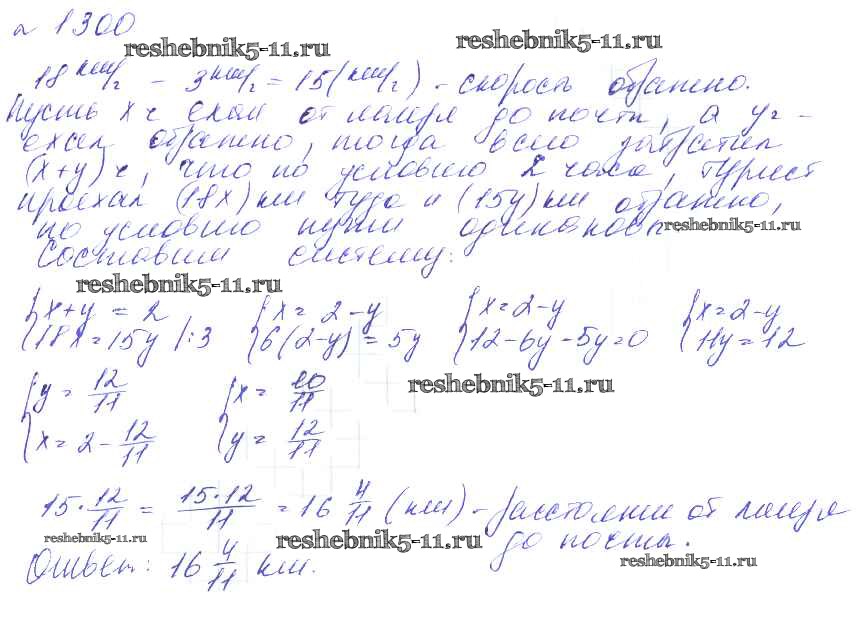 № 1300
reshebnik5-11.ru reshebnik5-11.ru
18 км/ч - 3 км/ч = 15 (км/ч) - скорость обратно.
Пусть x ч ехал от лагеря до почты, а y ч -
ехал обратно, тогда всего затратил
(x+y) ч, что по условию 2 часа, турист
проехал (18x) км туда и (15y) км обратно,
по условию пути одинаковы. reshebnik5-11.ru
Составим систему:
reshebnik5-11.ru
{x+y = 2 {x = 2-y {x=2-y {x=2-y
{18x=15y |:3 {6(2-y) = 5y {12-6y-5y=0 {11y=12
reshebnik5-11.ru
{y = 12/11 {x = 10/11
{x = 2 - 12/11 {y = 12/11
15 · 12/11 = 15·12/11 = 16 4/11 (км) - расстояние от лагеря
reshebnik5-11.ru reshebnik5-11.ru до почты.
Ответ: 16 4/11 км. reshebnik5-11.ru